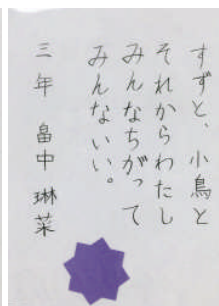 すずと、小鳥と
それからわたし
みんなちがって
みんないい。
三年 畠中 琳菜